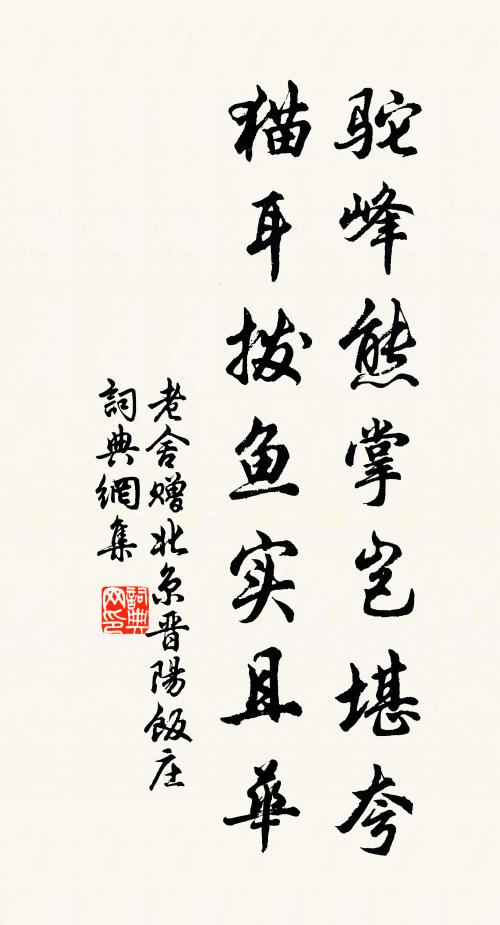 驼峰熊掌岂堪夸
猫耳拨鱼实且华
老舍赠北京晋陽飯庄
詞典網集
詞典网印